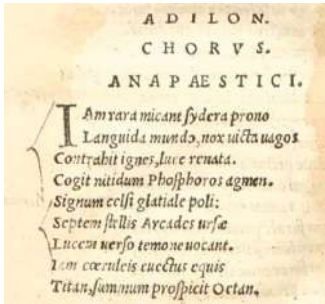 ADILON.
CHORVS.
ANAPAESTICI.
IAm rara micant sydera prono
Languida mundo, nox uicta uagos
Contrahit ignes, luce renata.
Cogit nitidum Phosphoros agmen.
Signum celsi glatiale poli;
Septem stellis Arcades ursæ
Lucem uerso temone uocant.
Iam cœruleis euectus equis
Titan, summum prospicit Oetan,